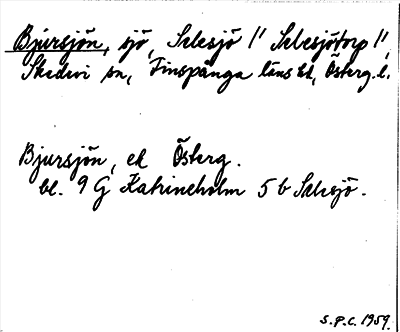 Bjursjön, sjö, Salesjö l" Salesjötorp l",
Skedevi sn, Finspånga läns hd, Österg. l.
Bjursjön, ek Österg.
bl. 9 G Katrineholm 5 b Salesjö.
S.P.C. 1959.